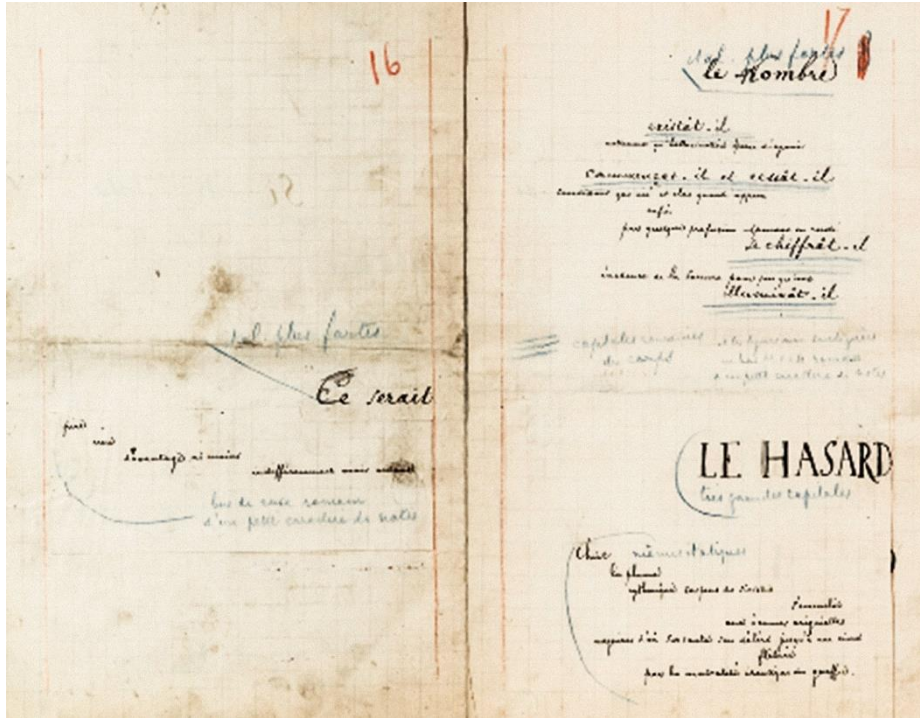 16
ital. plus fortes
Ce serait
pire
non
davantage ni moins
indifféremment mais autant
bas de casse romain
d'un petit caractère de notes
17
ital. plus fortes
le Nombre
existât-il
autrement qu'hallucination éparse d'agonie
commençât-il et cessât-il
sourdant que nié et clos quand apparu
enfin
par quelque profusion répandue en rareté
se chiffrât-il
évidence de la somme pour peu qu'une
illuminât-il
capitales romaines
du corps
bas de casse romain
d'un petit caractère de notes
LE HASARD
très grandes capitales
Choit mêmes italiques
la plume
rythmique suspens du sinistre
s'ensevelir
aux écumes originelles
naguères d'où sursauta son délire jusqu'à une cime
flétrie
par la neutralité identique du gouffre.